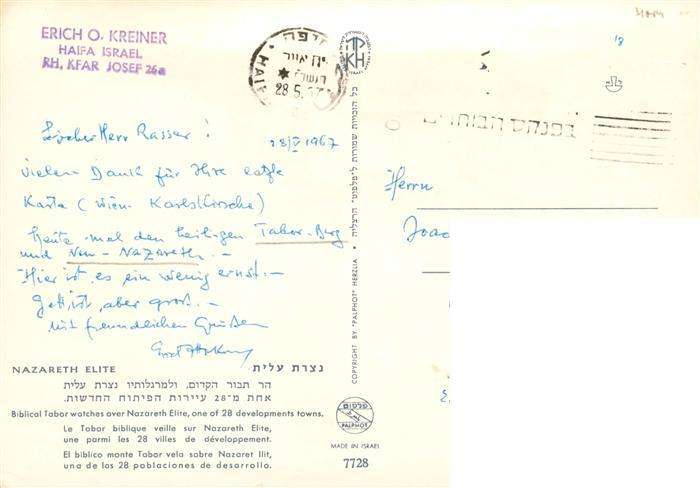 ERICH O. KREINER
HAIFA ISRAEL
RH. KFAR JOSEF 26a
חיפה
HAI
28.5.
Lieber Herr Rasser!
28/V 1967
vielen Dank für Ihre letzte
Karte (Wien-Karlskirche)
heute mal den heiligen Tabor-Berg
und Neu-Nazareth.-
Hier ist es ein wenig ernst.-
Gott ist aber gross.-
Mit freundlichen Grüßen
NAZARETH ELITE
נצרת עלית
הר תבור הקדום, ולמרגלותיו נצרת עלית
אחת מ־28 עיירות הפיתוח החדשות.
Biblical Tabor watches over Nazareth Elite, one of 28 developments towns.
Le Tabor biblique veille sur Nazareth Elite,
une parmi les 28 villes de développement.
El biblico monte Tabor vela sobre Nazaret Ilit,
una de las 28 poblaciones de desarrollo.
כל הזכויות שמורות ל"פלפוט" הרצליה
COPYRIGHT BY "PALPHOT" HERZLIA
פלפוט
PALPHOT
MADE IN ISRAEL
7728
18
בפנקס הבוחרים
Herrn
Joac